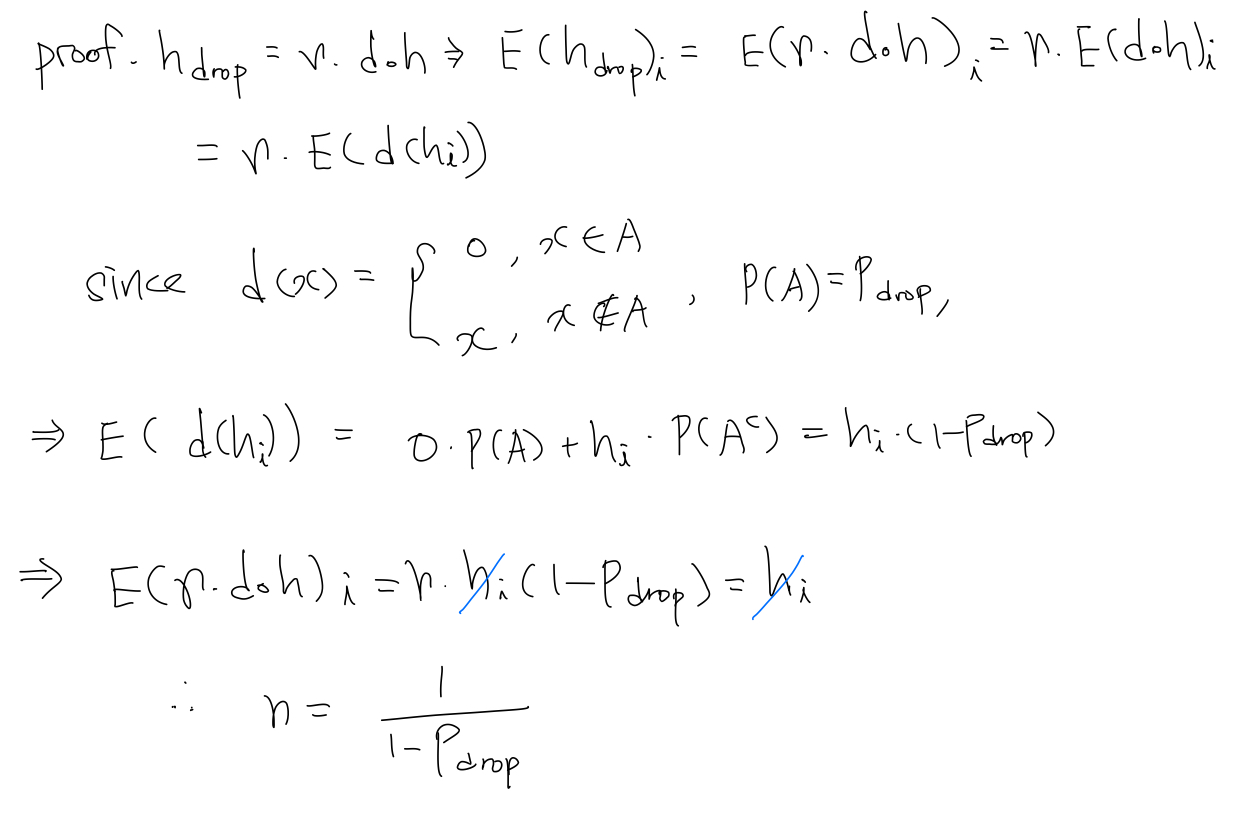 proof. h_drop = r. d∘h ⇒ E(h_drop)_i = E(r. d∘h)_i = r. E(d∘h)_i
= r. E(d(h_i))
since d(x) = { 0, x ∈ A
x, x ∉ A , P(A) = P_drop,
⇒ E(d(h_i)) = 0·P(A) + h_i · P(A^c) = h_i·(1-P_drop)
⇒ E(r. d∘h)_i = r. h_i (1-P_drop) = h_i
∴ r = 1/(1-P_drop)